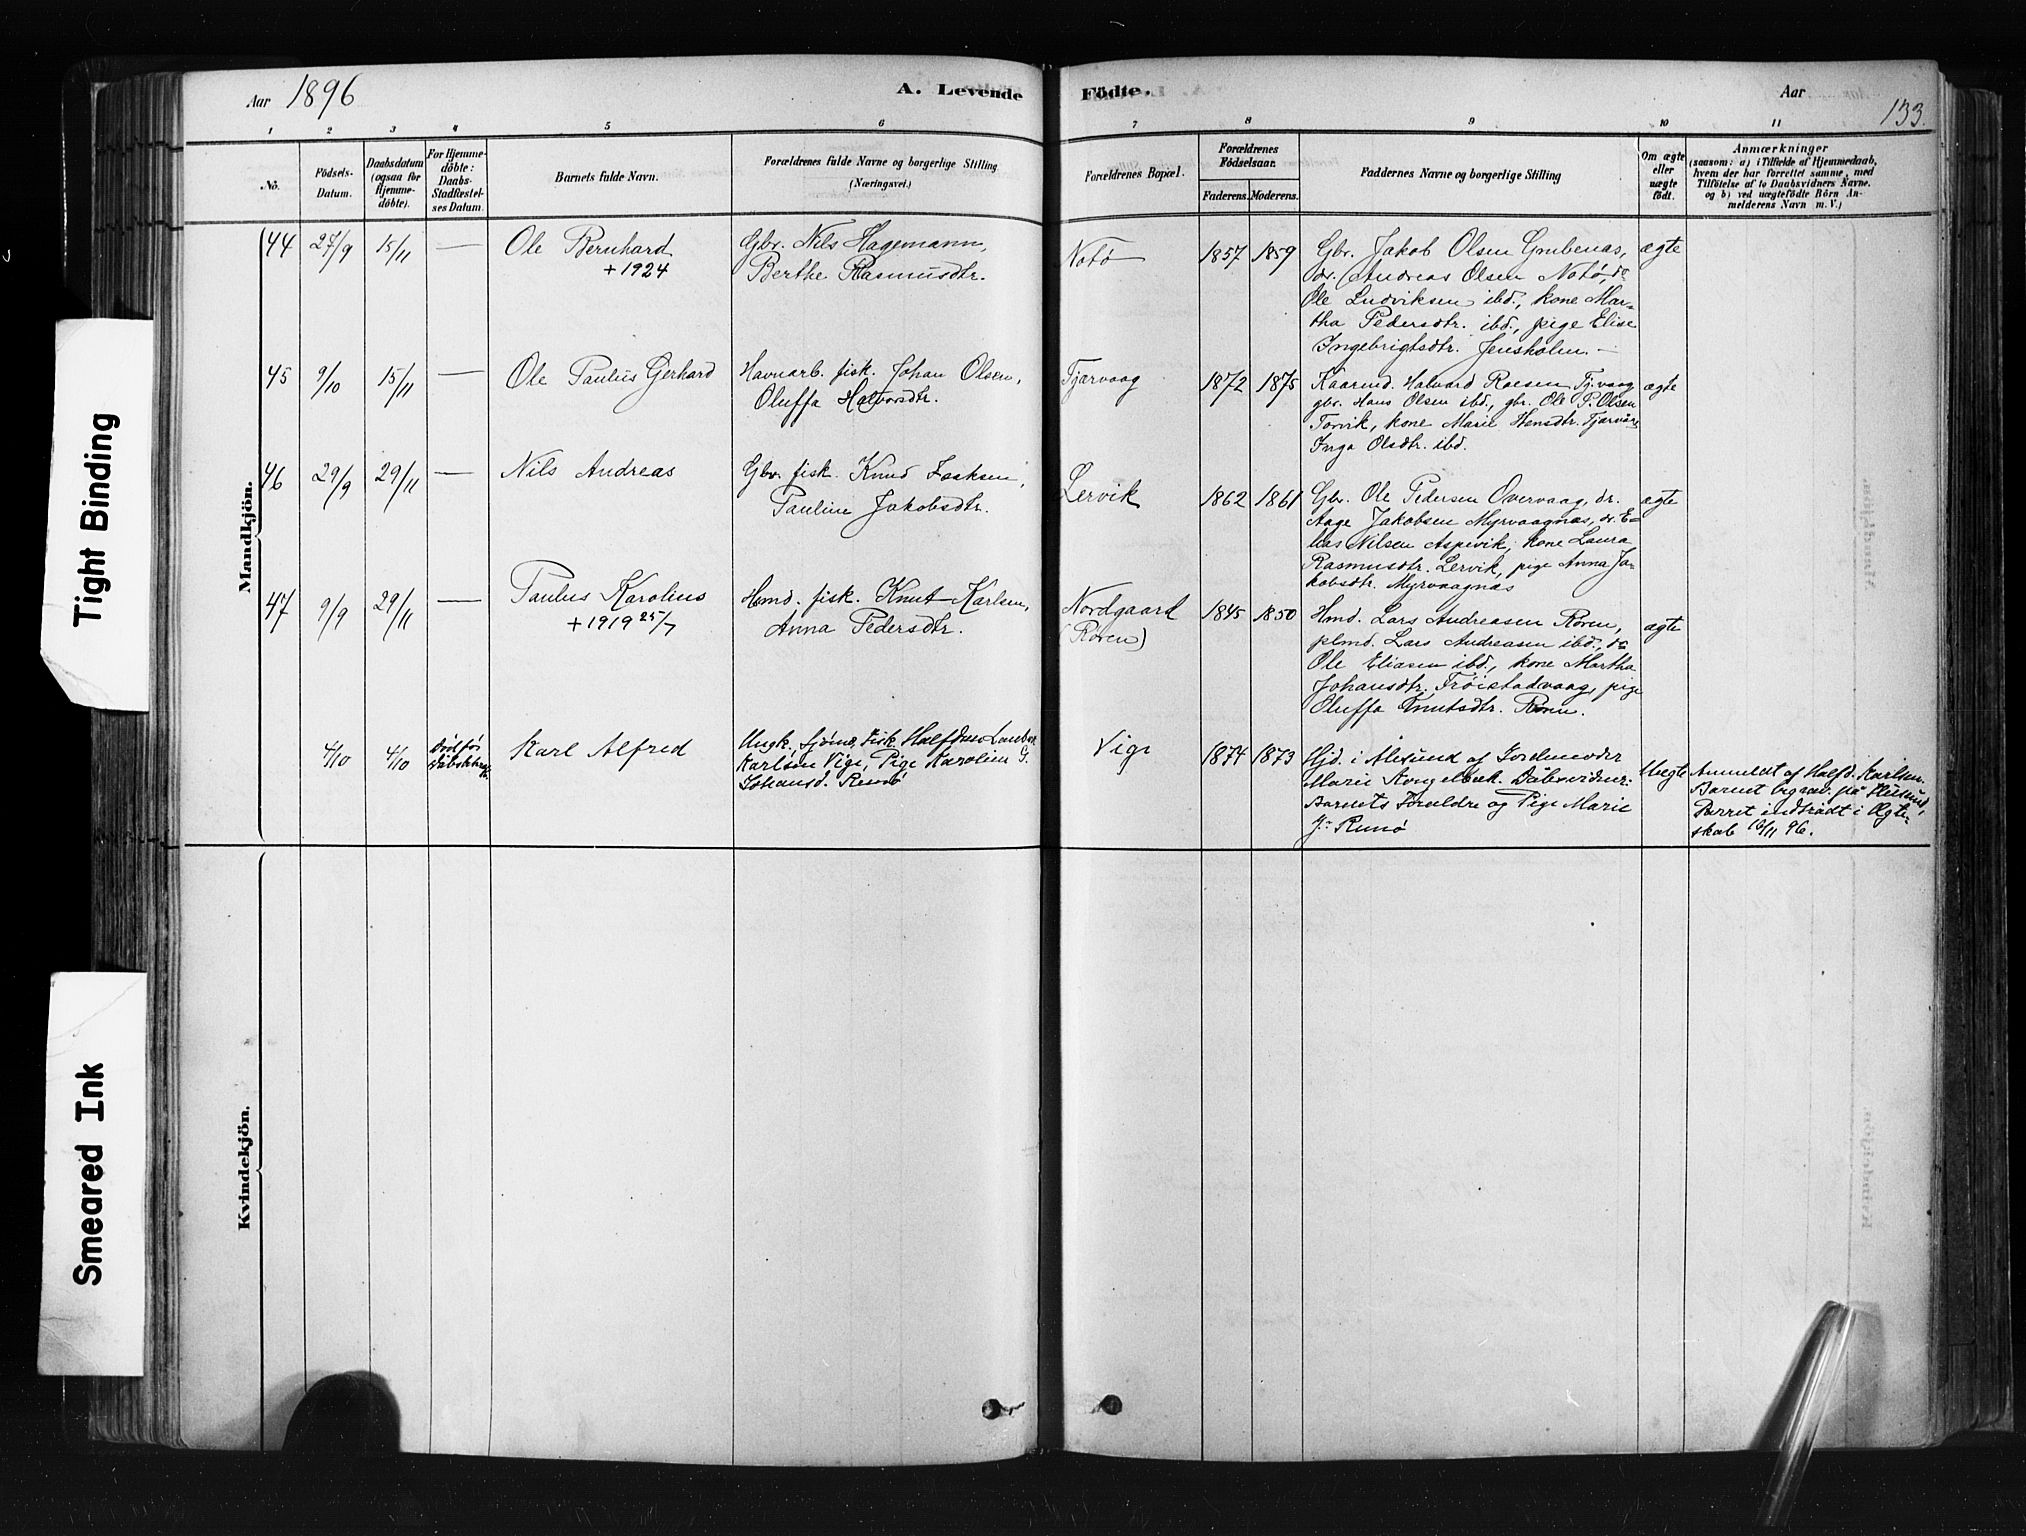 Aar 1896
A. Levende Födte.
Aar
133.
1 2 3 4 5 6 7 8 9 10 11
No.
Födsels-Datum.
Daabsdatum (ogsaa for Hjemme-döbte).
For Hjemme-döbte: Daabs-Stadfæstel-ses Datum.
Barnets fulde Navn.
Forældrenes fulde Navne og borgerlige Stilling (Næringsvei.)
Forældrenes Bopæl.
Forældrenes Födselsaar.
Faderens. Moderens.
Faddernes Navne og borgerlige Stilling
Om ægte eller uægte födt.
Anmærkninger
(saasom: a) i Tilfælde af Hjemmedaab,
hvem der har forrettet samme, med
Tilföielse af to Daabsvidners Navne.
og b) ved uægtefödte Börn An-
melderens Navn m. V.)
Mandkjön.
44 27/9 15/11 — Ole Bernhard
+1924
Gbr. Nils Hagemann,
Berthe Rasmusdtr.
Notø 1857 1859
Gbr. Jakob Olsen Grubenæs,
do. Andreas Olsen Notö, do
Ole Ludviksen ibd., kone Mar-
tha Pedersdtr. ibd., pige Elise
Ingebrigtsdtr. Jensholm. —
ægte
45 9/10 15/11 — Ole Paulus Gerhard
Havnarb. fisk. Johan Olsen,
Oluffa Halvorsdtr.
Tjærvaag 1872 1875
Kaarmd. Halvard Roesen Tj.vaag
gbr. Hans Olsen ibd., gbr. Ole P. Olsen
Torvik, kone Marie Hansdtr. Tjørvaag
Inga Olsdtr. ibd.
ægte
46 29/9 29/11 — Nils Andreas
Gbr. fisk. Knud Isaksen,
Pauline Jakobsdtr.
Lervik 1862 1861
Gbr. Ole Pedersen Overvaag, do.
Aage Jakobsen Myrvaagnæs, do. E-
lias Nilsen Aspevik, kone Laura
Rasmusdtr. Lervik, pige Anna Ja-
kobsdtr. Myrvaagnæs
ægte
47 9/9 29/11 — Paulus Karolius
+1919 25/7
Hmd. fisk. Knut Karlsen,
Anna Pedersdtr.
Nordgaard
(Røren)
1845 1850
Hmd. Lars Andreasen Røren,
plmd. Lars Andreasen ibd., do
Ole Eliasen ibd., kone Martha
Johansdtr. Frøistadvaag, pige
Oluffa Knutsdtr. Røren.
ægte
4/10 4/10 Död før
Karl Alfred
Ungk. sjömd. Fisk. Halfdan
Karlsen Vige, Pige Karoline G.
Johansd. Runö
Vige 1874 1873
Hjd. i Ålesund af Jordemoder
Marie Daabsvidner:
Barnets Foreldre og Pige Marie
Runö
Uægte
Anmeldt af Halfd. Karlsen.
Barnet begrav. på Ålesund,
Parret indtrådt i Ægte-
skab 16/11 96.
Kvindekjön.
Tight Binding
Smeared Ink